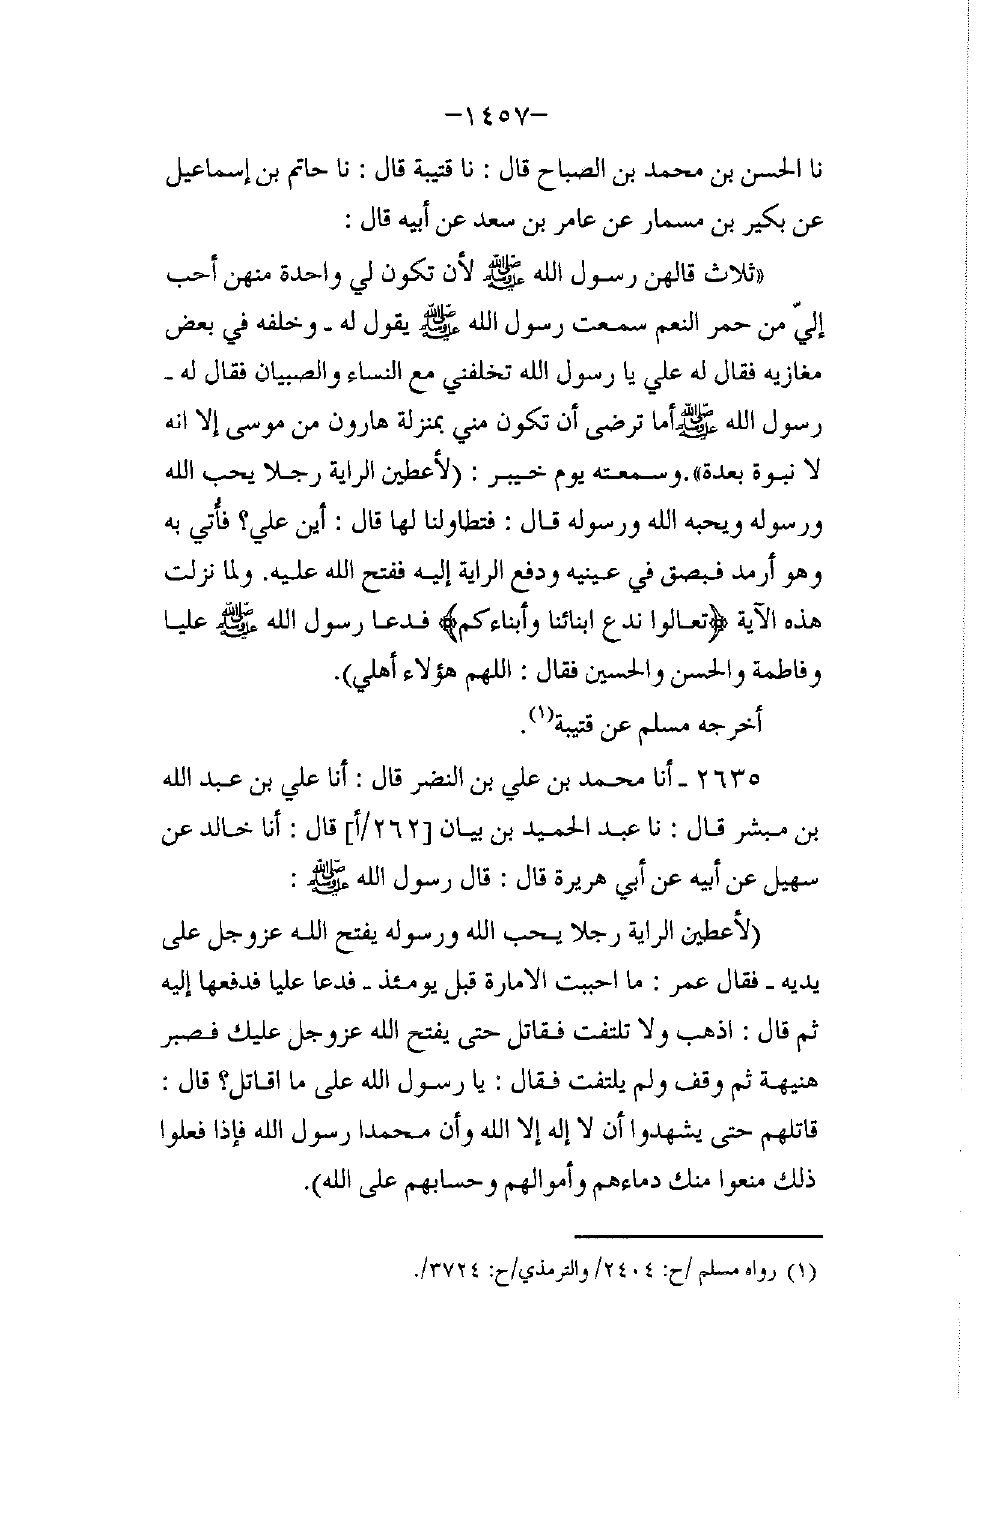 -١٤٥٧-
نا الحسن بن محمد بن الصباح قال : نا قتيبة قال : نا حاتم بن إسماعيل
عن بكير بن مسمار عن عامر بن سعد عن أبيه قال :
«ثلاث قالهن رسول الله ﷺ لأن تكون لي واحدة منهن أحب
إليّ من حمر النعم سمعت رسول الله ﷺ يقول له ـ وخلفه في بعض
مغازيه فقال له علي يا رسول الله تخلفني مع النساء والصبيان فقال له ـ
رسول الله ﷺ أما ترضى أن تكون مني بمنزلة هارون من موسى إلا انه
لا نبوة بعدة». وسمعته يوم خيبر : (لأعطين الراية رجلا يحب الله
ورسوله ويحبه الله ورسوله قال : فتطاولنا لها قال : أين علي؟ فأُتي به
وهو أرمد فبصق في عينيه ودفع الراية إليه ففتح الله عليه. ولما نزلت
هذه الآية ﴿تعالوا ندع ابنائنا وأبناءكم﴾ فدعا رسول الله ﷺ عليا
وفاطمة والحسن والحسين فقال : اللهم هؤلاء أهلي).
أخرجه مسلم عن قتيبة(١).
٢٦٣٥ ـ أنا محمد بن علي بن النضر قال : أنا علي بن عبد الله
بن مبشر قال : نا عبد الحميد بن بيان [٢٦٢/أ] قال : أنا خالد عن
سهيل عن أبيه عن أبي هريرة قال : قال رسول الله ﷺ :
(لأعطين الراية رجلا يحب الله ورسوله يفتح الله عزوجل على
يديه ـ فقال عمر : ما احببت الامارة قبل يومئذ ـ فدعا عليا فدفعها إليه
ثم قال : اذهب ولا تلتفت فقاتل حتى يفتح الله عزوجل عليك فصبر
هنيهة ثم وقف ولم يلتفت فقال : يا رسول الله على ما اقاتل؟ قال :
قاتلهم حتى يشهدوا أن لا إله إلا الله وأن محمدا رسول الله فإذا فعلوا
ذلك منعوا منك دماءهم وأموالهم وحسابهم على الله).
(١) رواه مسلم /ح: ٢٤٠٤/ والترمذي/ح: ٣٧٢٤/.